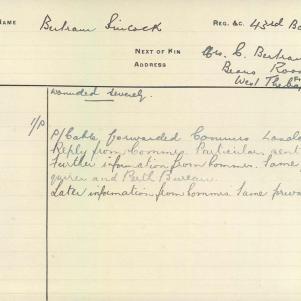 NAME Bertram Sincock REG. &C. 43rd Ba
NEXT OF KIN Mrs. C. Bertram
ADDRESS Bears Road
West Theba
wounded severely.
P/Cable forwarded Commrs London
Reply from Commrs. Particulars sent
Further information from Commrs. Same
quirer and Perth Bureau.
Later information from Commrs. Same forw